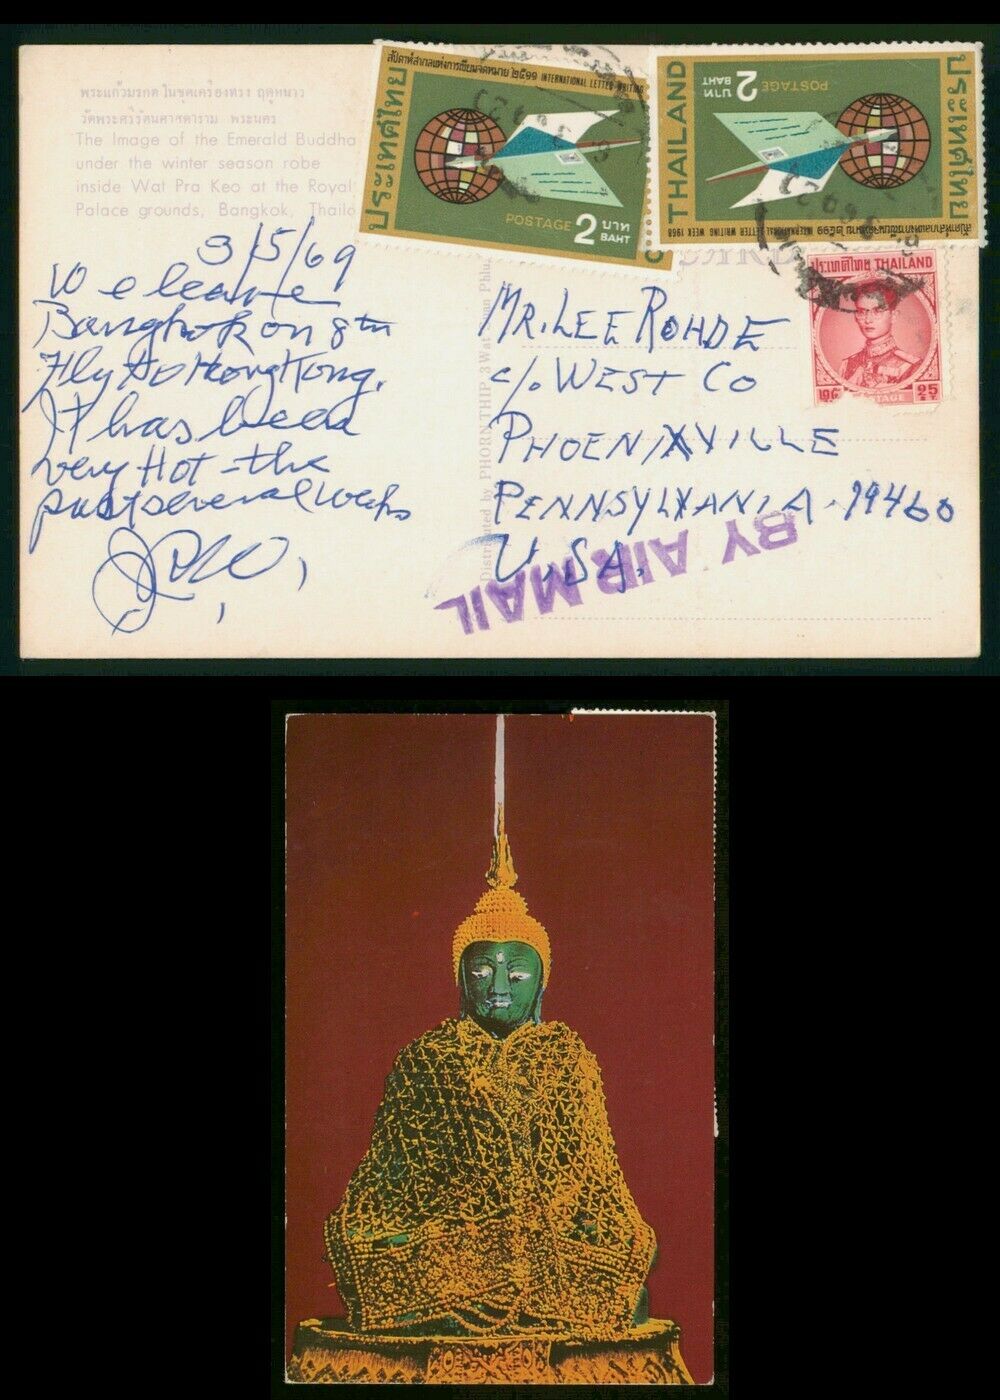 พระแก้วมรกต ในชุดเครื่องทรง ฤดูหนาว
วัดพระศรีรัตนศาสดาราม พระนคร
The Image of the Emerald Buddha
under the winter season robe
inside Wat Pra Keo at the Royal
Palace grounds, Bangkok, Thaila
3/5/69
We leave
Bangkok on 8th
Fly to Hong Kong.
It has been
very Hot - the
past several weeks
Distributed by PHORN THIP, 3 Wat
MR. LEE ROHDE
c/o WEST CO
PHOENIXVILLE
PENNSYLVANIA - 19460
U.S.A.
BY AIR MAIL
สัปดาห์สากลแห่งการเขียนจดหมาย ๒๕๑๑ INTERNATIONAL LETTER WRITING
ประเทศไทย
POSTAGE 2 บาท
BAHT
THAILAND
2 บาท
BAHT
POSTAGE
ประเทศไทย
INTERNATIONAL LETTER WRITING WEEK 1968
ประเทศไทย THAILAND
POSTAGE 25